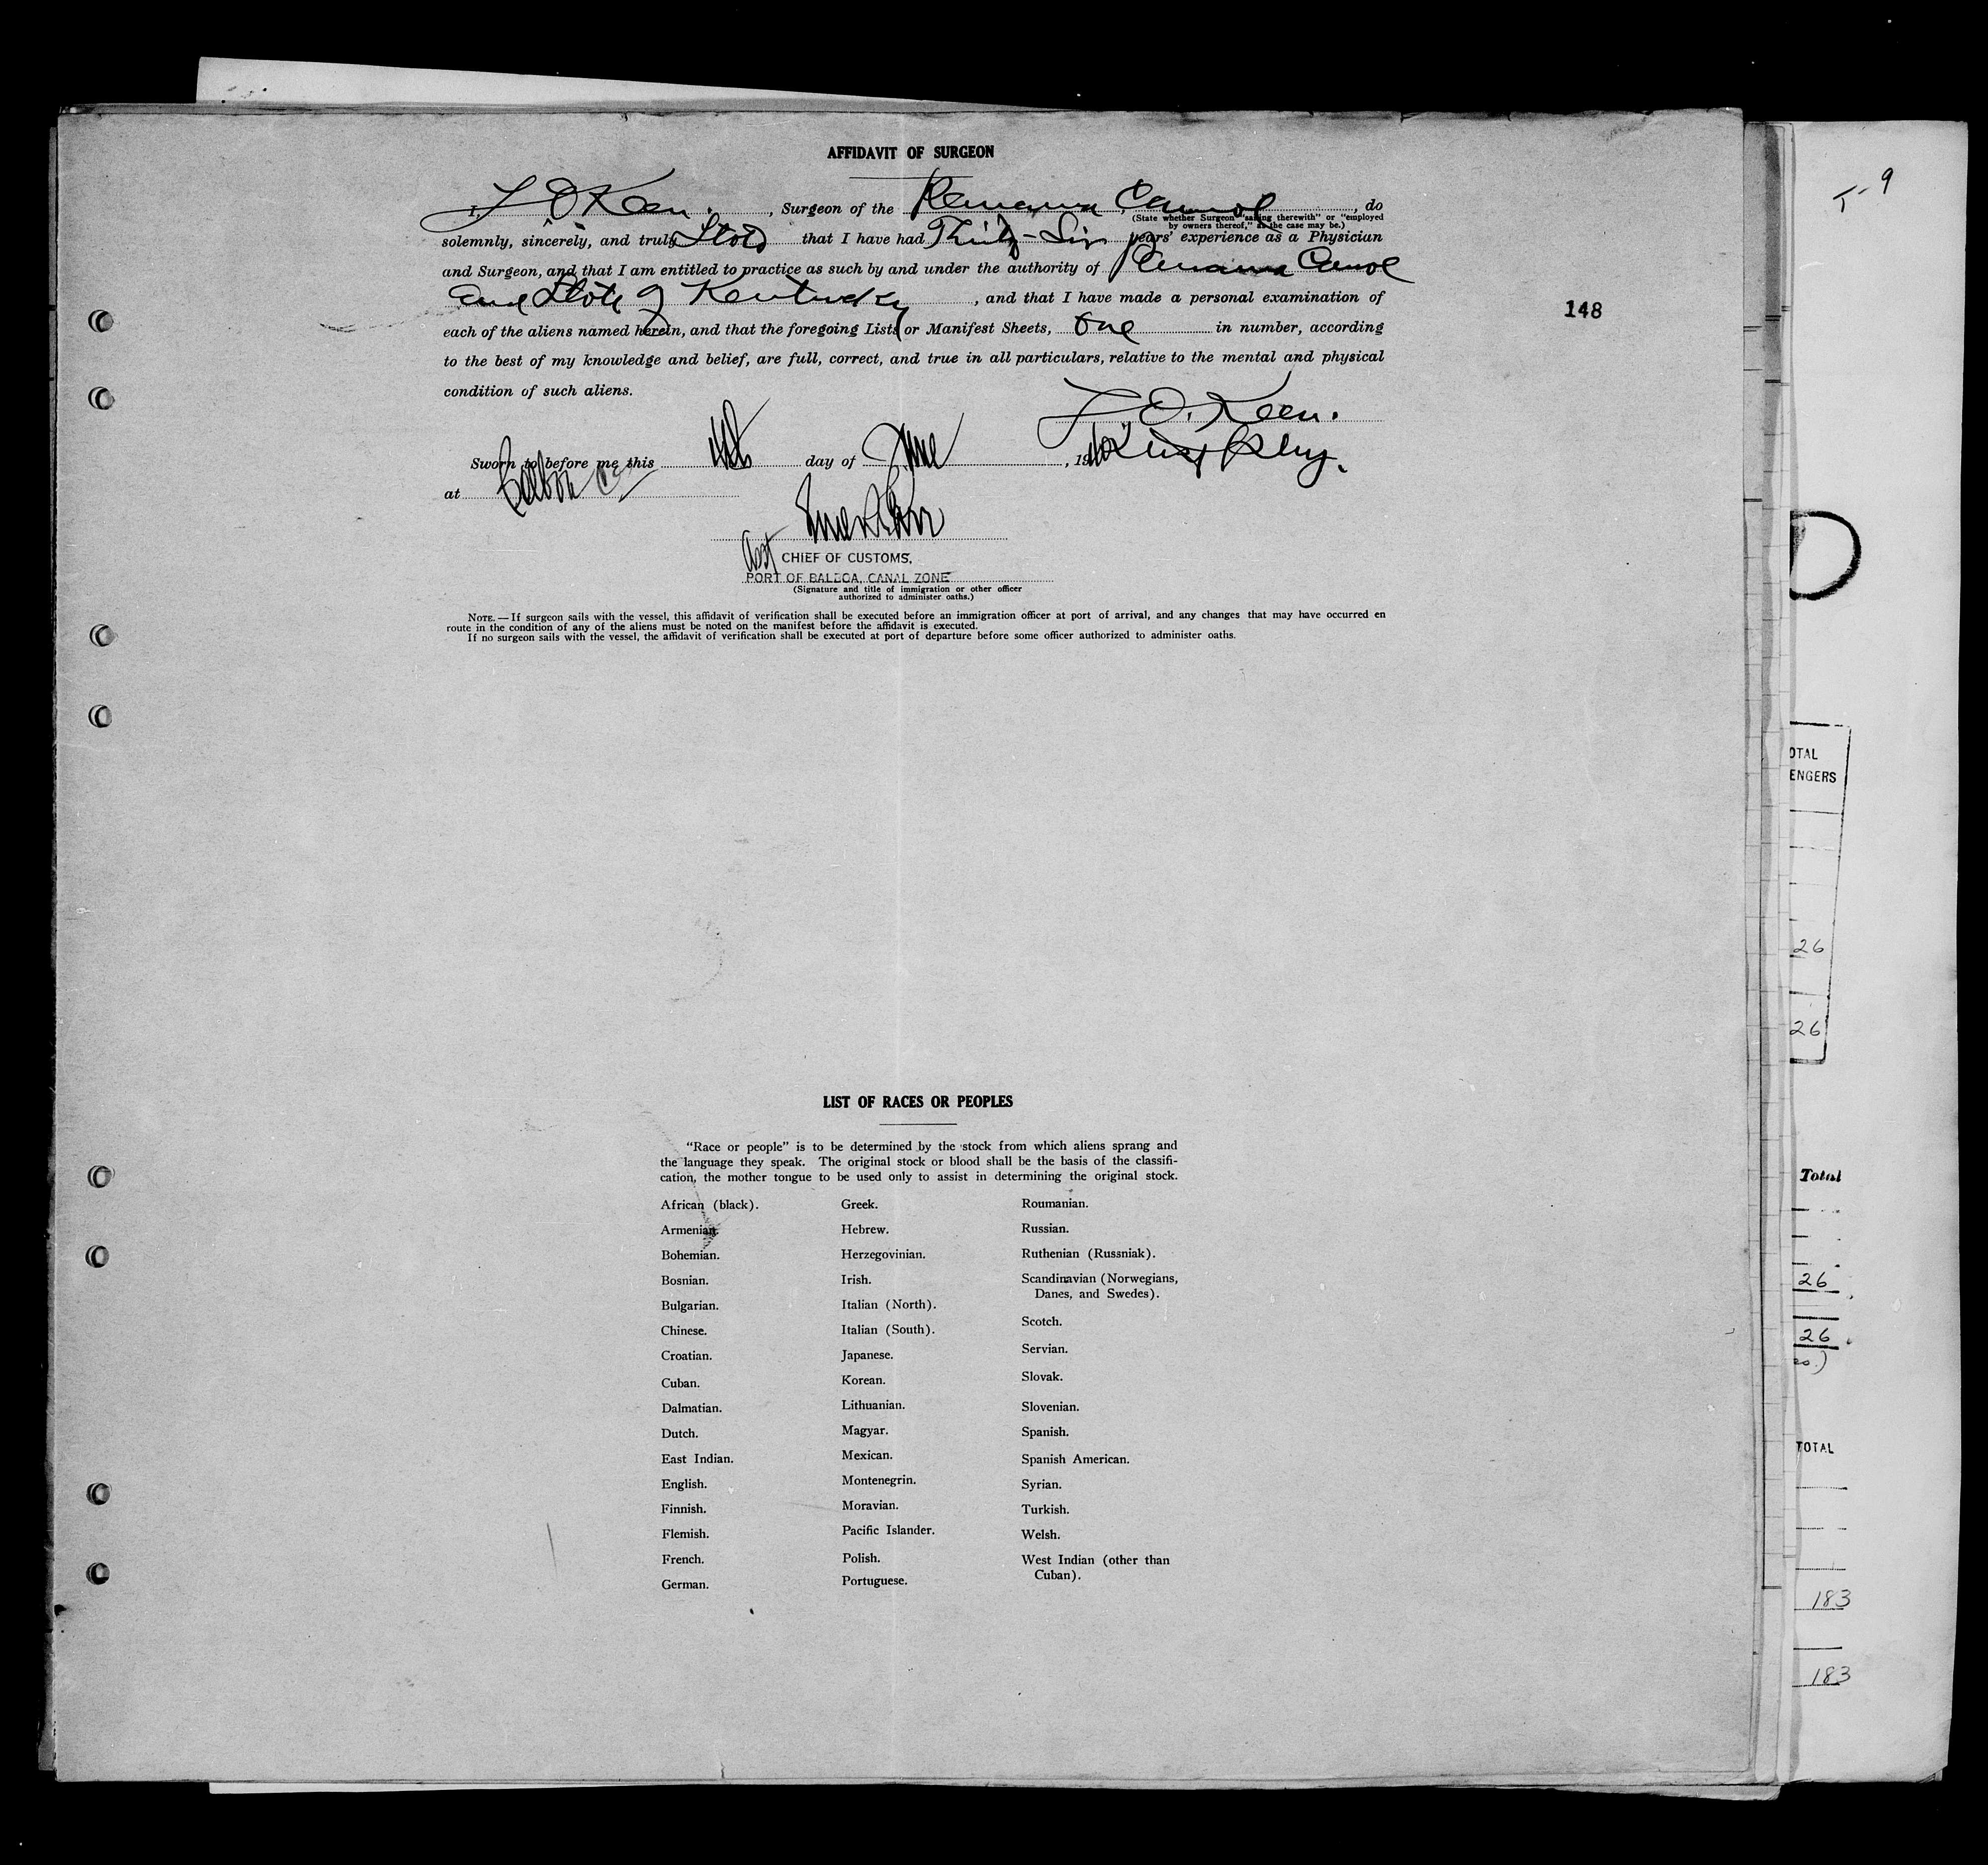 AFFIDAVIT OF SURGEON
I, L O Keen., Surgeon of the Panama Canal, do
(State whether Surgeon "sailing therewith" or "employed
by owners thereof," as the case may be.)
solemnly, sincerely, and truly State that I have had Thirty-Six years' experience as a Physician
and Surgeon, and that I am entitled to practice as such by and under the authority of Panama Canal
and State of Kentucky, and that I have made a personal examination of
148
each of the aliens named herein, and that the foregoing Lists or Manifest Sheets, One in number, according
to the best of my knowledge and belief, are full, correct, and true in all particulars, relative to the mental and physical
condition of such aliens.
L O. Keen.
Sworn to before me this day of June, 19
at Balboa CZ
Asst CHIEF OF CUSTOMS,
PORT OF BALBOA, CANAL ZONE
(Signature and title of immigration or other officer
authorized to administer oaths.)
NOTE.—If surgeon sails with the vessel, this affidavit of verification shall be executed before an immigration officer at port of arrival, and any changes that may have occurred en
route in the condition of any of the aliens must be noted on the manifest before the affidavit is executed.
If no surgeon sails with the vessel, the affidavit of verification shall be executed at port of departure before some officer authorized to administer oaths.
LIST OF RACES OR PEOPLES
"Race or people" is to be determined by the stock from which aliens sprang and
the language they speak. The original stock or blood shall be the basis of the classifi-
cation, the mother tongue to be used only to assist in determining the original stock.
African (black).
Armenian.
Bohemian.
Bosnian.
Bulgarian.
Chinese.
Croatian.
Cuban.
Dalmatian.
Dutch.
East Indian.
English.
Finnish.
Flemish.
French.
German.
Greek.
Hebrew.
Herzegovinian.
Irish.
Italian (North).
Italian (South).
Japanese.
Korean.
Lithuanian.
Magyar.
Mexican.
Montenegrin.
Moravian.
Pacific Islander.
Polish.
Portuguese.
Roumanian.
Russian.
Ruthenian (Russniak).
Scandinavian (Norwegians,
Danes, and Swedes).
Scotch.
Servian.
Slovak.
Slovenian.
Spanish.
Spanish American.
Syrian.
Turkish.
Welsh.
West Indian (other than
Cuban).
9
OTAL
ENGERS
26
26
Total
26
26
TOTAL
183
183